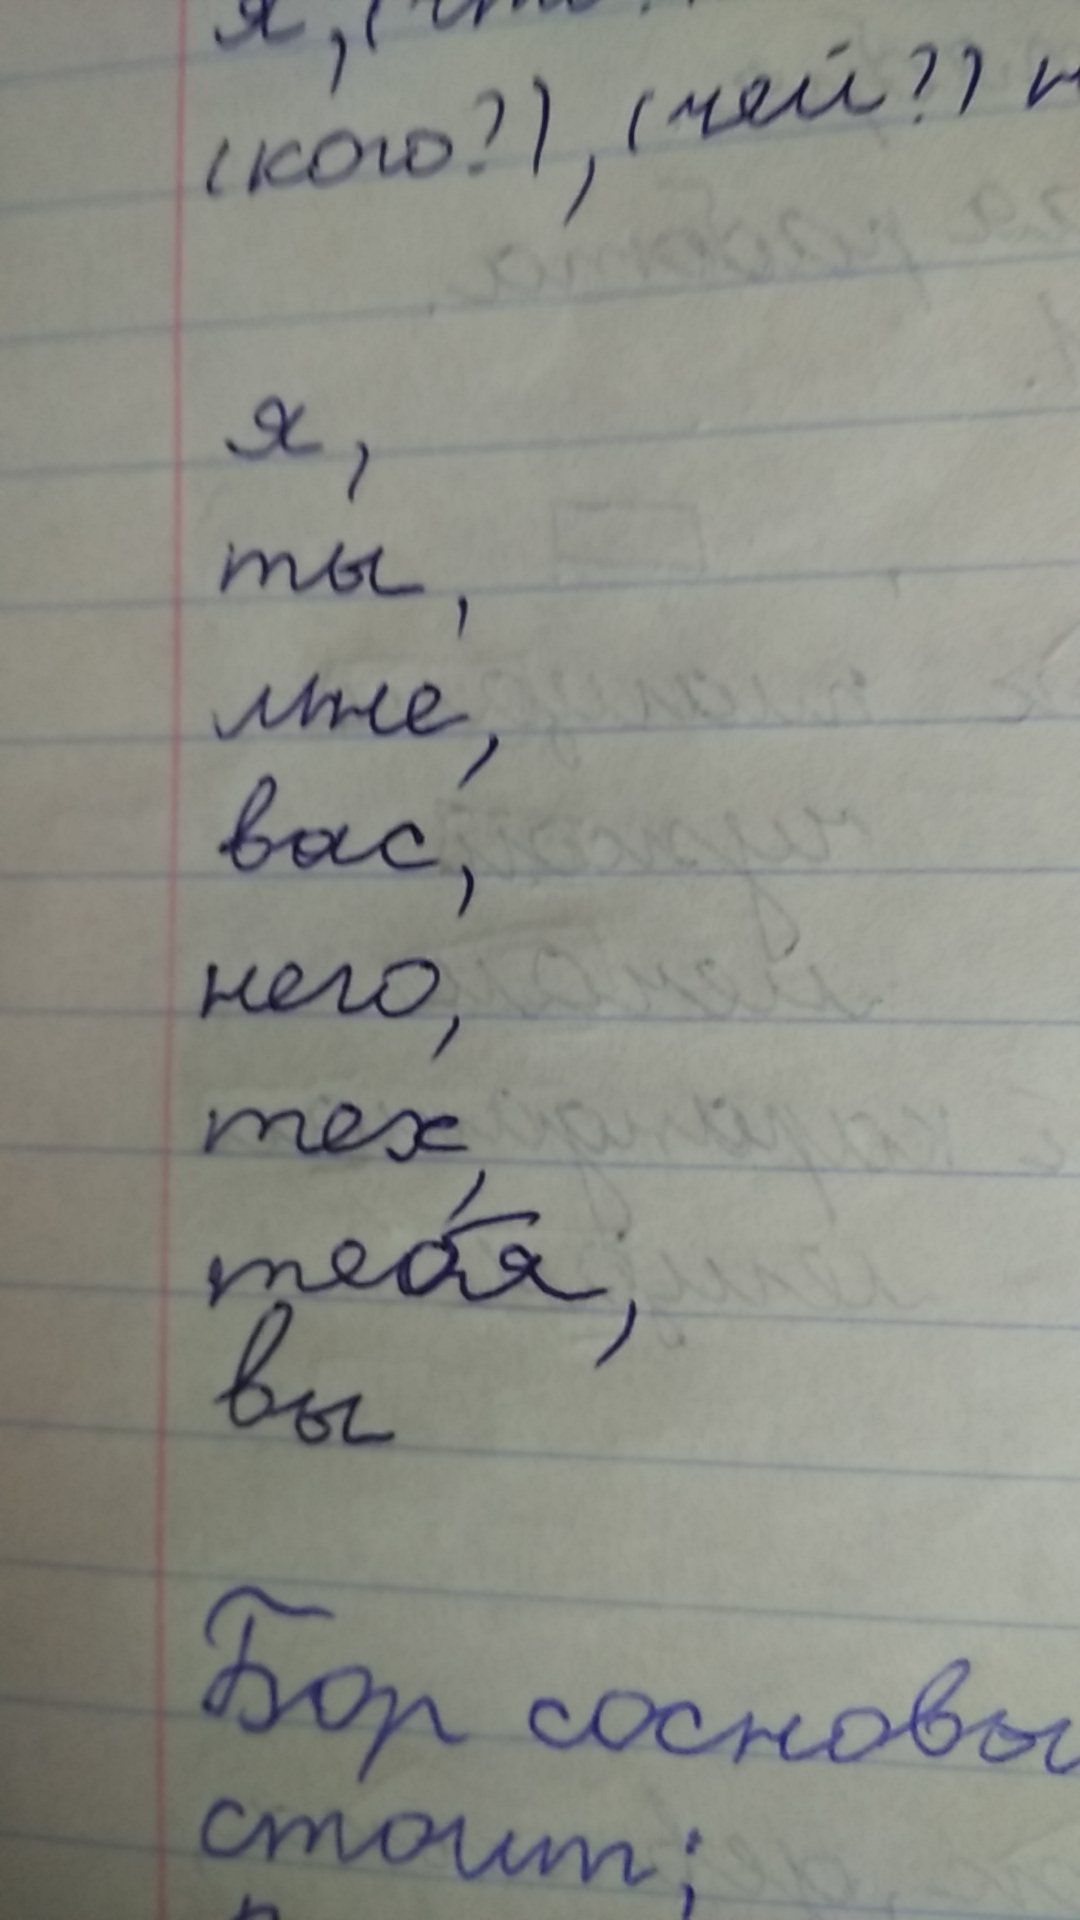 я, (что
(кого?), (чей?) н
я,
ты,
мне,
вас,
него,
тех,
тебя,
вы
Бор сосновы
стоит;